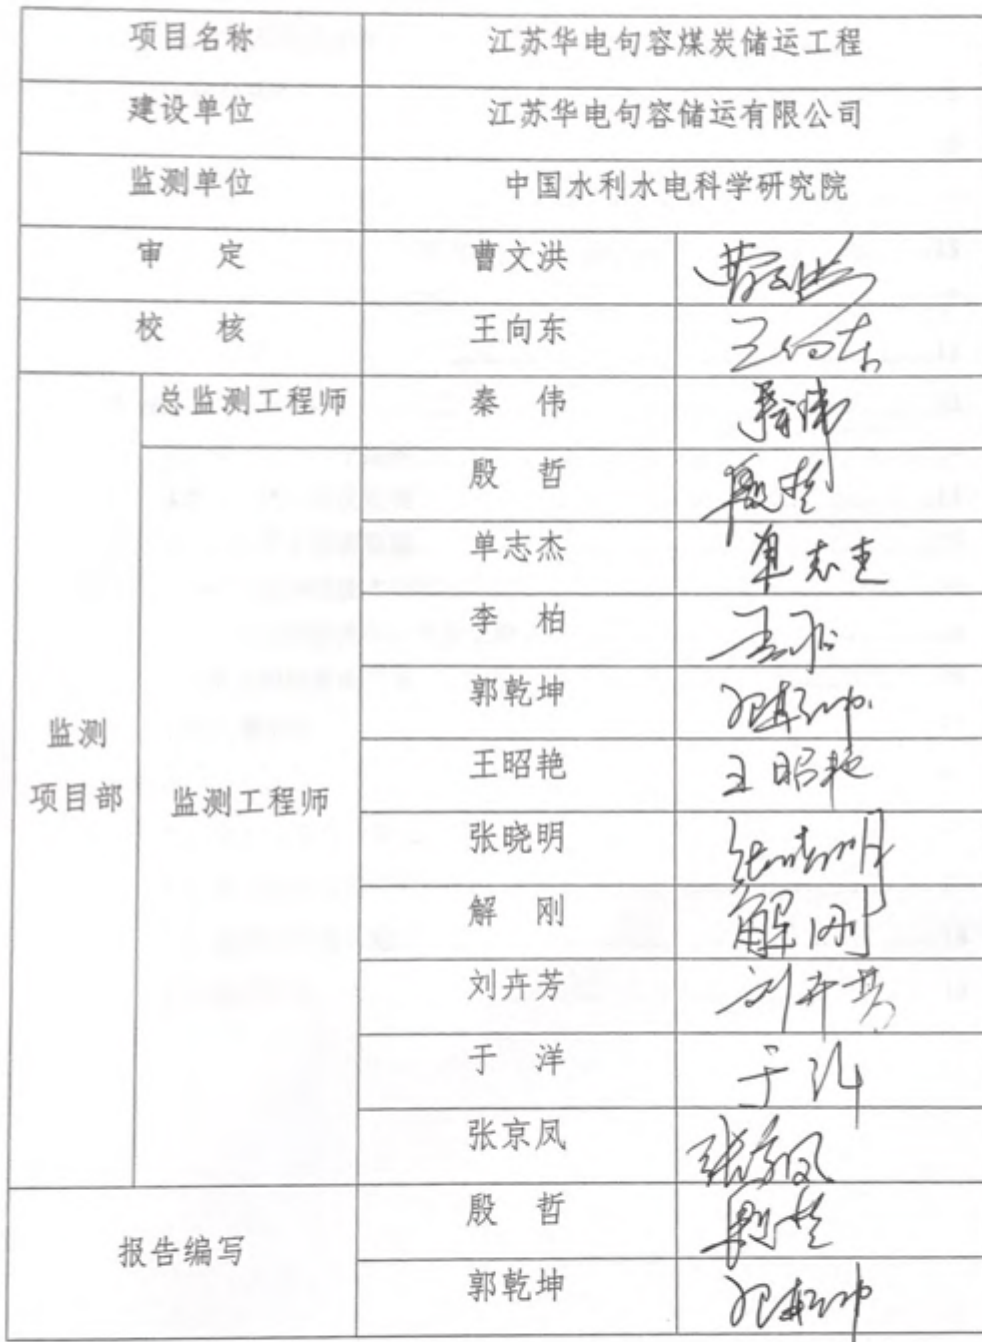 项目名称 江苏华电句容煤炭储运工程
建设单位 江苏华电句容储运有限公司
监测单位 中国水利水电科学研究院
审 定 曹文洪 曹文洪
校 核 王向东 王向东
总监测工程师 秦 伟 秦伟
殷 哲 殷哲
单志杰 单志杰
李 柏
郭乾坤 郭乾坤
监测
项目部
监测工程师
王昭艳 王昭艳
张晓明 张晓明
解 刚 解刚
刘卉芳 刘卉芳
于 洋 于洋
张京凤 张京凤
报告编写
殷 哲 殷哲
郭乾坤 郭乾坤